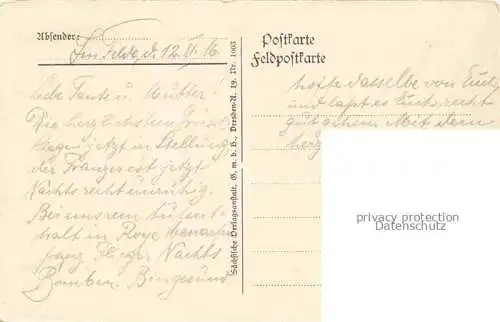 Absender:
Im Felde, d. 12. 11. 16
Liebe Tante u. Mutter!
Die herzlichsten Grüsse
liegen jetzt in Stellung
der Franzose ist jetzt
Nachts recht unruhig.
Bei unseren
halt in Roye
Flieger Nachts
Bomben. Bin gesund
Sächsische Verlagsanstalt, G. m. b. H., Dresden-A. 19. Nr. 1003
Postkarte
Feldpostkarte
hoffe dasselbe von Euch
und lapt es Euch recht
gut gehen. Mit dem
herz
privacy protection
Datenschutz